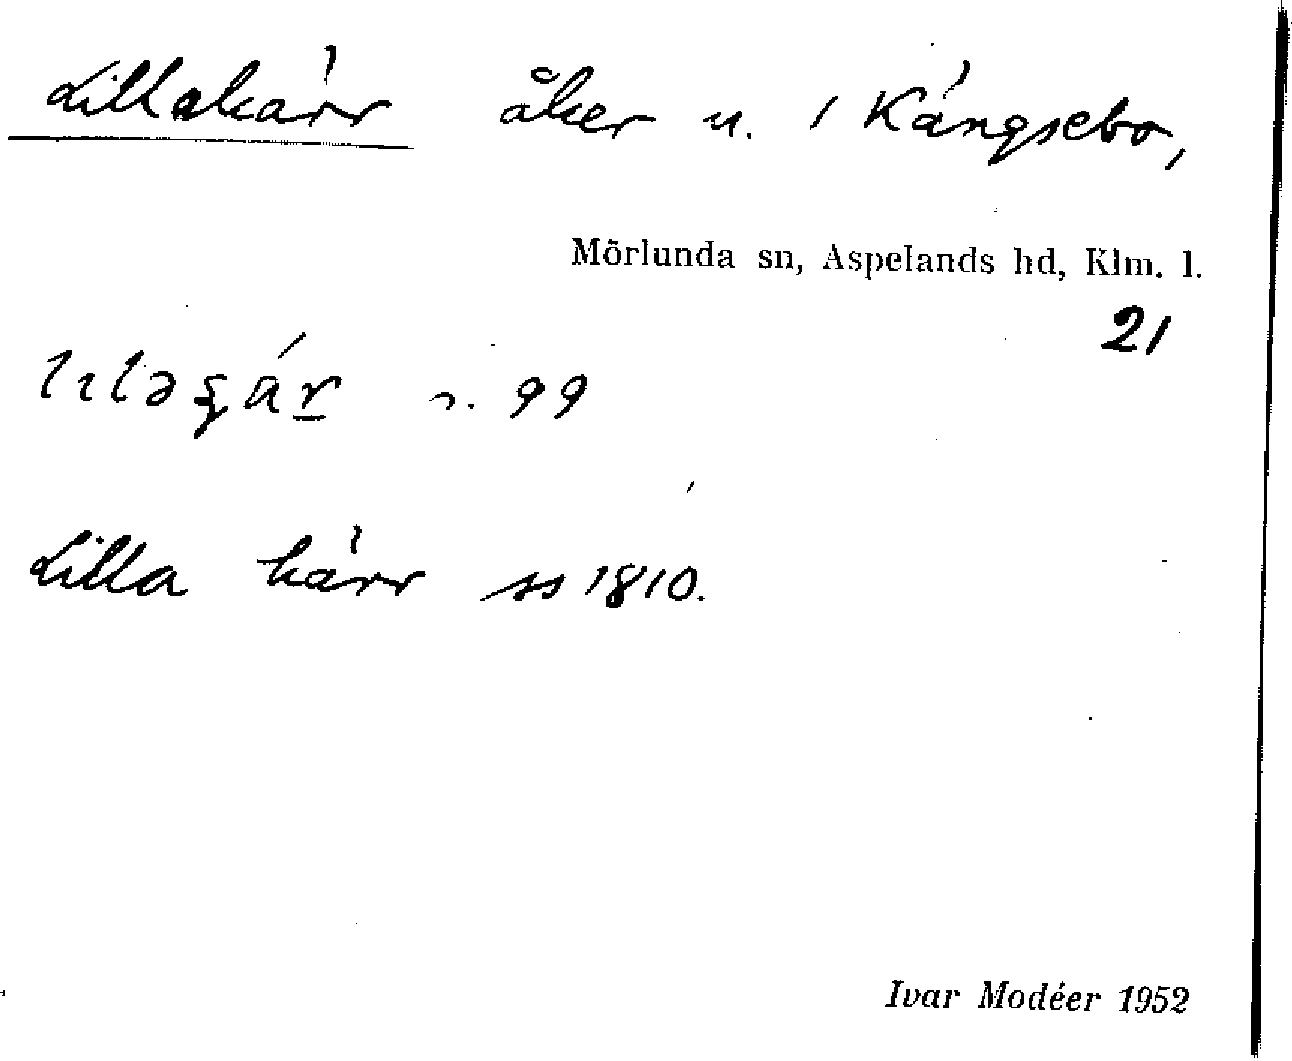 Lillakärr åker u. 1 Kängsebo,
Mörlunda sn, Aspelands hd, Klm. l.
21
n. 99
Lilla kärr ss 1810.
Ivar Modéer 1952